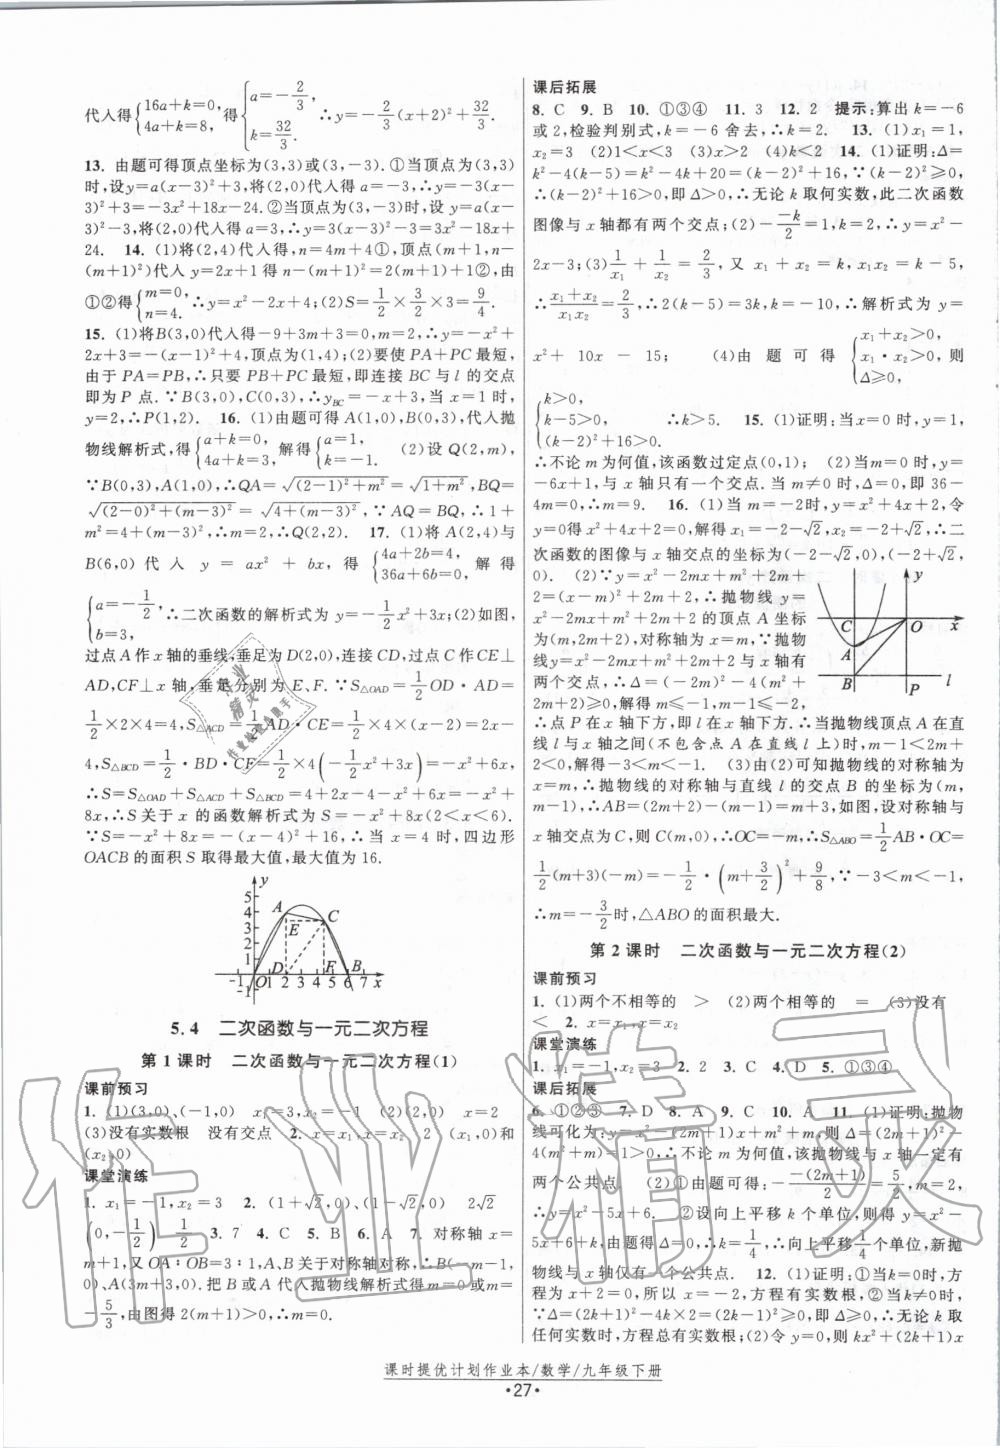 代入得{16a+k=0, 4a+k=8, 得{a=-2/3, k=32/3. ∴y=-2/3(x+2)²+32/3.
13. 由题可得顶点坐标为(3,3)或(3,-3).①当顶点为(3,3)
时,设y=a(x-3)²+3,将(2,0)代入得a=-3,∴y=-3(x-
3)²+3=-3x²+18x-24.②当顶点为(3,-3)时,设y=a(x-
3)²-3,将(2,0)代入得a=3,∴y=3(x-3)²-3=3x²-18x+
24. 14. (1)将(2,4)代入得,n=4m+4①,顶点(m+1,n-
(m+1)²)代入y=2x+1得n-(m+1)²=2(m+1)+1②,由
①②得{m=0, n=4. ∴y=x²-2x+4;(2)S=1/2×3/2×3=9/4.
15. (1)将B(3,0)代入得-9+3m+3=0,m=2,∴y=-x²+
2x+3=-(x-1)²+4,顶点为(1,4);(2)要使PA+PC最短,
由于PA=PB,∴只要PB+PC最短,即连接BC与l的交点
即为P点.∵B(3,0),C(0,3),∴y_BC=-x+3,当x=1时,
y=2,∴P(1,2). 16. (1)由题可得A(1,0),B(0,3),代入抛
物线解析式,得{a+k=0, 4a+k=3, 解得{a=1, k=-1. (2)设Q(2,m),
∵B(0,3),A(1,0),∴QA=√((2-1)²+m²)=√(1+m²),BQ=
√((2-0)²+(m-3)²)=√(4+(m-3)²),∵AQ=BQ,∴1+
m²=4+(m-3)²,∴m=2,∴Q(2,2). 17. (1)将A(2,4)与
B(6,0)代入y=ax²+bx,得{4a+2b=4, 36a+6b=0, 解得
{a=-1/2, b=3, ∴二次函数的解析式为y=-1/2x²+3x;(2)如图,
过点A作x轴的垂线,垂足为D(2,0),连接CD,过点C作CE⊥
AD,CF⊥x轴,垂足分别为E、F.∵S△OAD=1/2OD·AD=
1/2×2×4=4,S△ACD=1/2AD·CE=1/2×4×(x-2)=2x-
4,S△BCD=1/2·BD·CF=1/2×4(-1/2x²+3x)=-x²+6x,
∴S=S△OAD+S△ACD+S△BCD=4+2x-4-x²+6x=-x²+
8x,∴S关于x的函数解析式为S=-x²+8x(2<x<6).
∵S=-x²+8x=-(x-4)²+16,∴当x=4时,四边形
OACB的面积S取得最大值,最大值为16.
y
5
4
3
2
1
A
E
C
-1 O 1 2 3 4 5 6 7 x
D F B
-1
5.4 二次函数与一元二次方程
第1课时 二次函数与一元二次方程(1)
课前预习
1. (1)(3,0)、(-1,0) x₁=3,x₂=-1 (2)(2,0) x=2
(3)没有实数根 没有交点 2. x=x₁,x=x₂ 2 (x₁,0)和
(x₂,0)
课堂演练
1. x₁=-1,x₂=3 2. (1+√2,0)、(1-√2,0) 2√2
(0,-1/2) 1/2 3. 7 4. C 5. B 6. A 7. 对称轴x=
-1,又OA∶OB=3∶1,A、B关于对称轴对称,∴B(-1,
0)、A(3,0).把B或A代入抛物线解析式得m=0或m=
-5/3,由图得2(m+1)>0,∴m=0.
课后拓展
8. C 9. B 10. ①③④ 11. 3 12. 2 提示:算出k=-6
或2,检验判别式,k=-6舍去,∴k=2. 13. (1)x₁=1,
x₂=3 (2)1<x<3 (3)x>2 (4)k<2 14. (1)证明:Δ=
k²-4(k-5)=k²-4k+20=(k-2)²+16,∵(k-2)²≥0,
∴(k-2)²+16>0,即Δ>0,∴无论k取何实数,此二次函数
图像与x轴都有两个交点;(2)--k/2=1,k=2,∴y=x²-
2x-3;(3)1/x₁+1/x₂=2/3,又x₁+x₂=k,x₁x₂=k-5,
∴(x₁+x₂)/(x₁x₂)=2/3,∴2(k-5)=3k,k=-10,∴解析式为y=
x²+10x-15; (4)由题可得{x₁+x₂>0, x₁·x₂>0, Δ≥0, 则
{k>0, k-5>0, (k-2)²+16>0. ∴k>5. 15. (1)证明:当x=0时,y=1,
∴不论m为何值,该函数过定点(0,1); (2)当m=0时,y=
-6x+1,此时与x轴只有一个交点.当m≠0时,Δ=0,即36-
4m=0,∴m=9. 16. (1)当m=-2时,y=x²+4x+2,令
y=0得x²+4x+2=0,解得x₁=-2-√2,x₂=-2+√2,∴二
次函数的图像与x轴交点的坐标为(-2-√2,0),(-2+√2,
0). (2)∵y=x²-2mx+m²+2m+
2=(x-m)²+2m+2,∴抛物线y=
x²-2mx+m²+2m+2的顶点A坐标
为(m,2m+2),对称轴为x=m,∵抛物
线y=x²-2mx+m²+2m+2与x轴有
交点,∴Δ=(-2m)²-4(m²+
2m+2)≥0,解得m≤-1,m-1≤-2,
∴点P在x轴下方,即l在x轴下方.∴当抛物线顶点A在直
线l与x轴之间(不包含点A在直线l上)时,m-1<2m+2,
解得-3<m≤-1. (3)由(2)可知抛物线的对称轴为x=
m,∴抛物线的对称轴与直线l的交点B的坐标为(m,
m-1),∴AB=(2m+2)-(m-1)=m+3,如图,设对称轴与
x轴交点为C,则C(m,0),∴OC=-m,∴S△ABO=1/2AB·OC=
1/2(m+3)(-m)=-1/2·(m+3/2)²+9/8,∵-3<m≤-1,
∴m=-3/2时,△ABO的面积最大.
y
C O x
A
B P l
第2课时 二次函数与一元二次方程(2)
课前预习
1. (1)两个不相等的 > (2)两个相等的 = (3)没有
< 2. x=x₁,x=x₂
课堂演练
1. x₁=-1,x₂=3 2. 2 3. C 4. D 5. ①③④
课后拓展
6. ①②③ 7. D 8. A 9. C 10. A 11. (1)证明:抛物
4(m²+m)=1>0,∴不论m为何值,该抛物线与x轴一定有
两个公共点. (2)①由题意可得:-(-(2m+1))/2=5/2,m=2,
∴y=x²-5x+6.②设向上平移k个单位,则得到y=x²-
5x+6+k,由题得Δ=0,∴k=1/4,∴向上平移1/4个单位,抛
物线与x轴仅有一个公共点. 12. (1)证明:①当k=0时,方
程为x+2=0,所以x=-2,方程有实数根,②当k≠0时,
∵Δ=(2k+1)²-4k×2=(2k-1)²≥0,即Δ≥0,∴无论k取
任何实数时,方程总有实数根;(2)令y=0,则kx²+(2k+1)x
课时提优计划作业本/数学/九年级下册
·27·
作业精灵